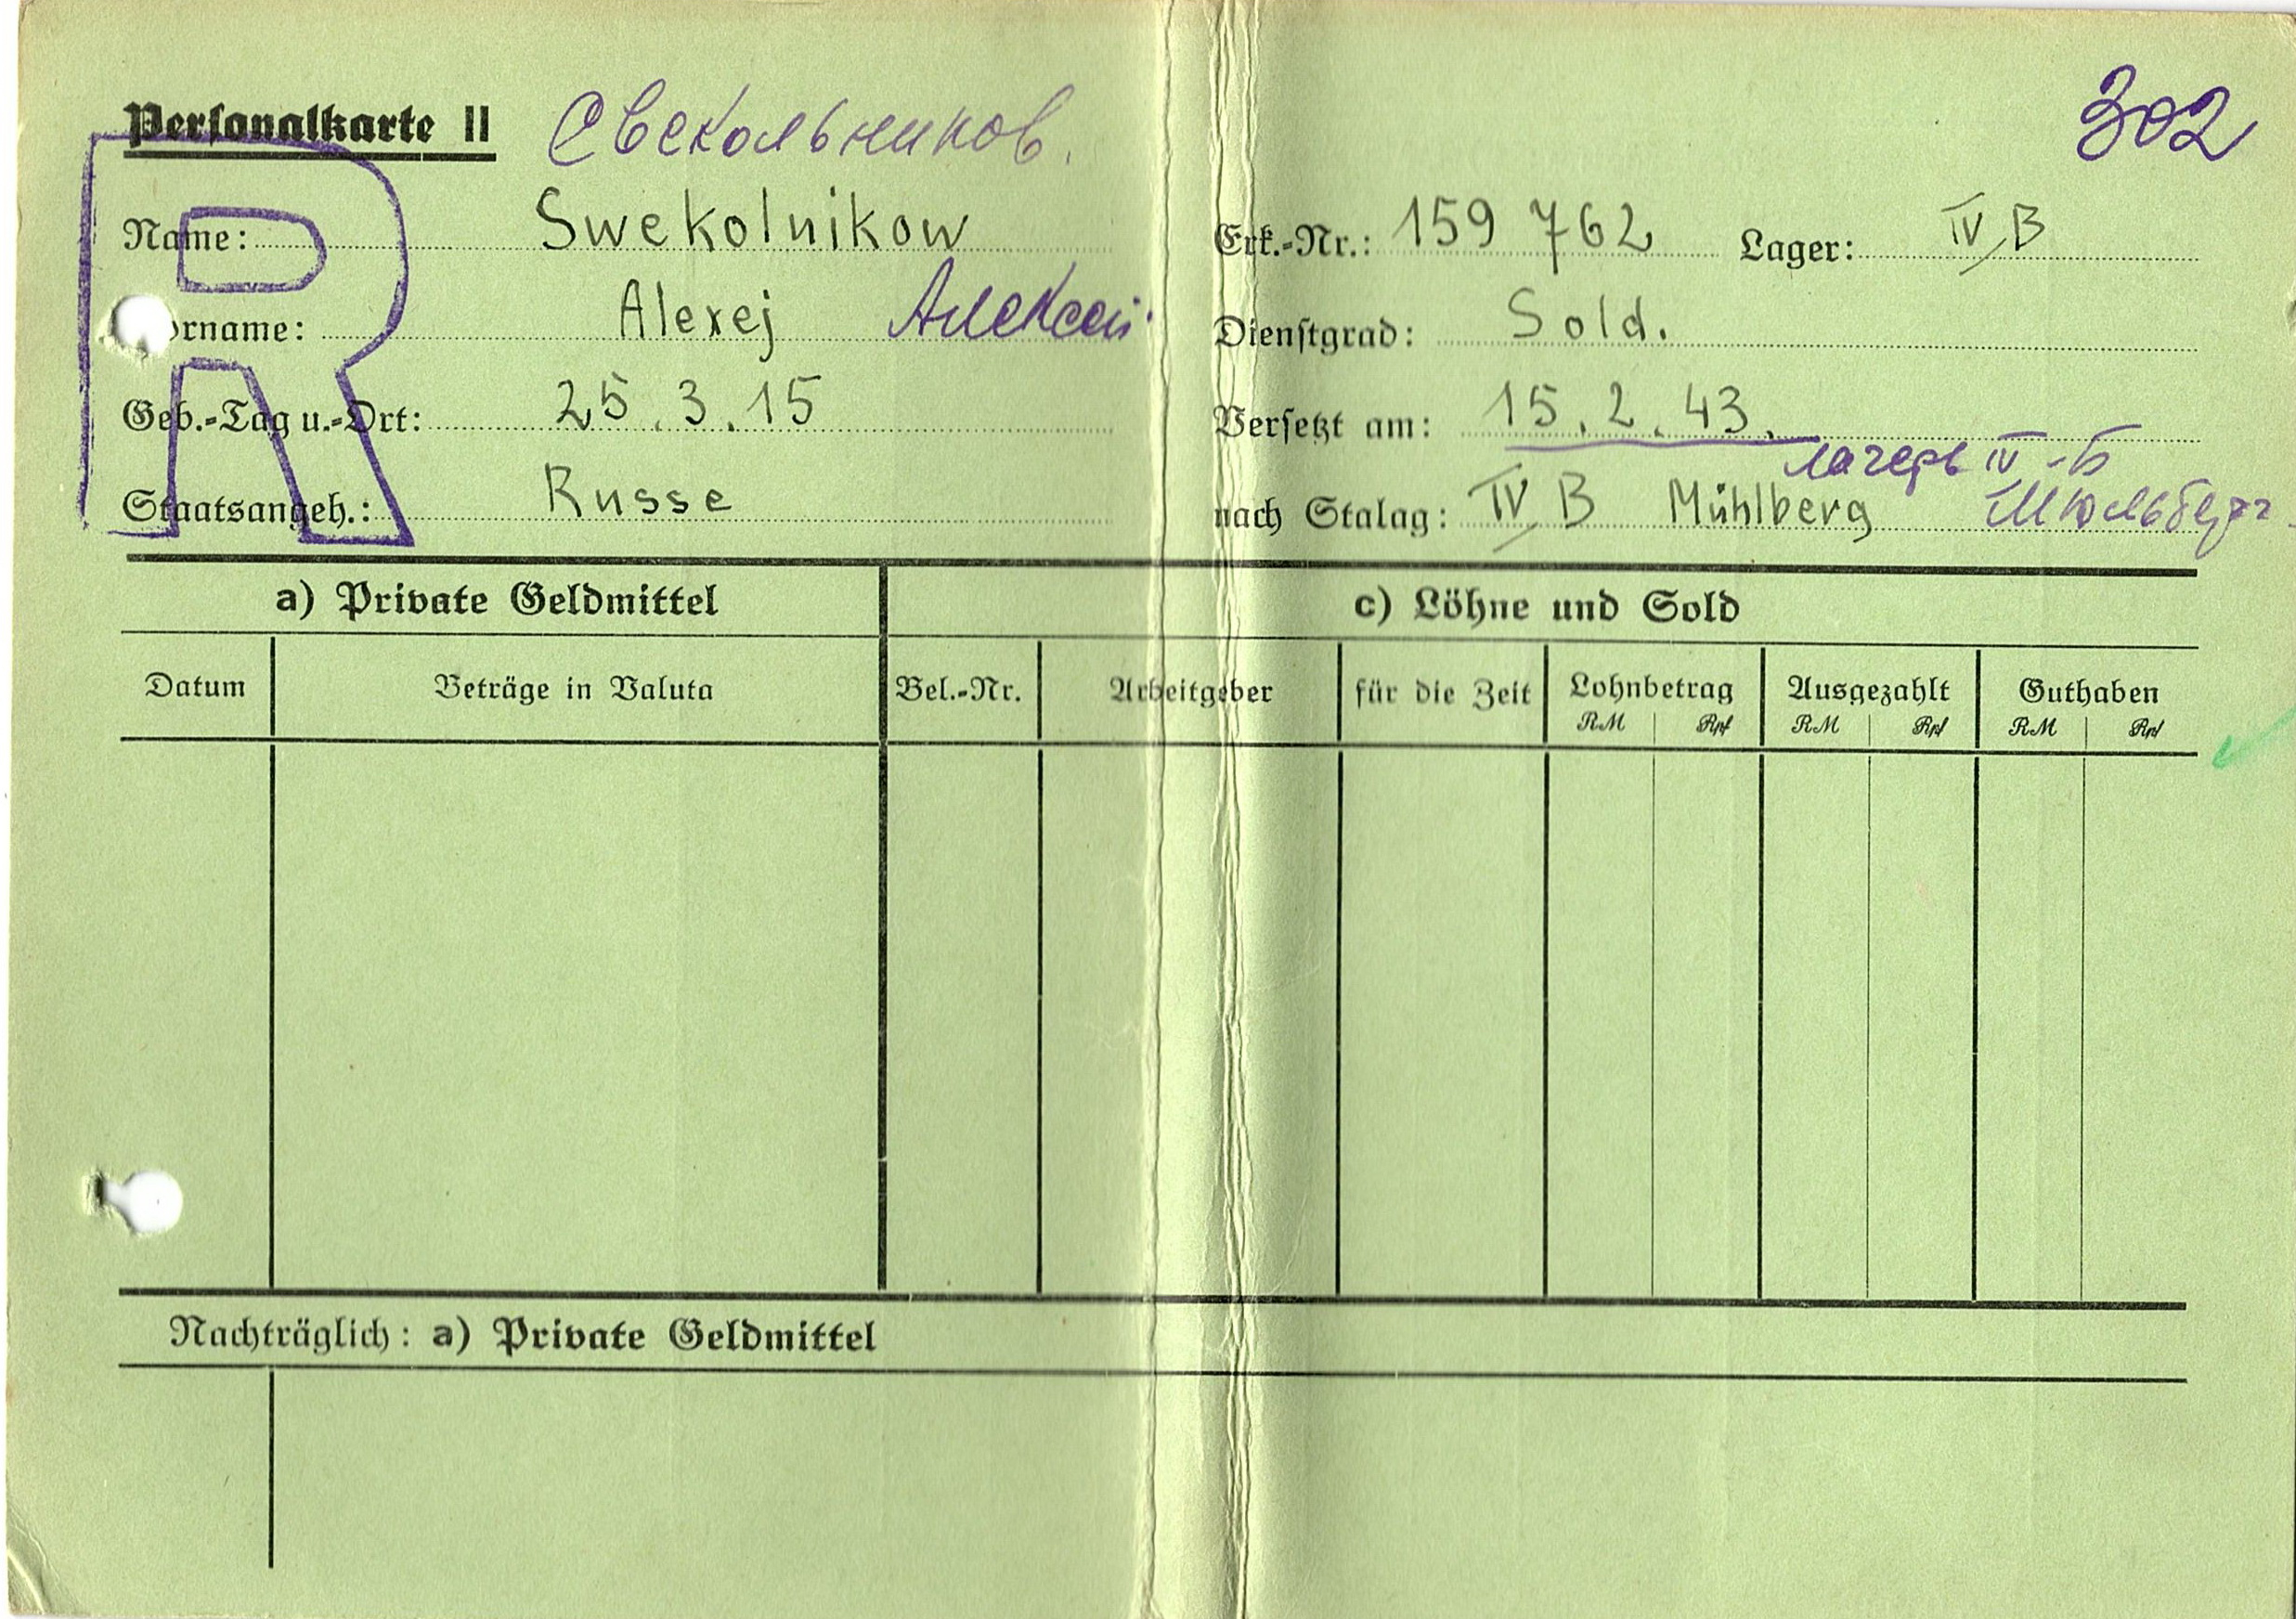 Personalkarte II Свекольников.
302
R
Name: Swekolnikow
Erk.-Nr.: 159 762 Lager: IV B
orname: Alexej Алексей
Dienstgrad: Sold.
Geb.-Tag u.-Ort: 25.3.15
Versetzt am: 15.2.43.
лагерь IV-Б
Staatsangeh.: Russe
nach Stalag: IV B Mühlberg Мюльберг
a) Private Geldmittel
c) Löhne und Sold
Datum Beträge in Valuta Bel.-Nr. Arbeitgeber für die Zeit Lohnbetrag Ausgezahlt Guthaben
RM Rpf RM Rpf RM Rpf
Nachträglich: a) Private Geldmittel